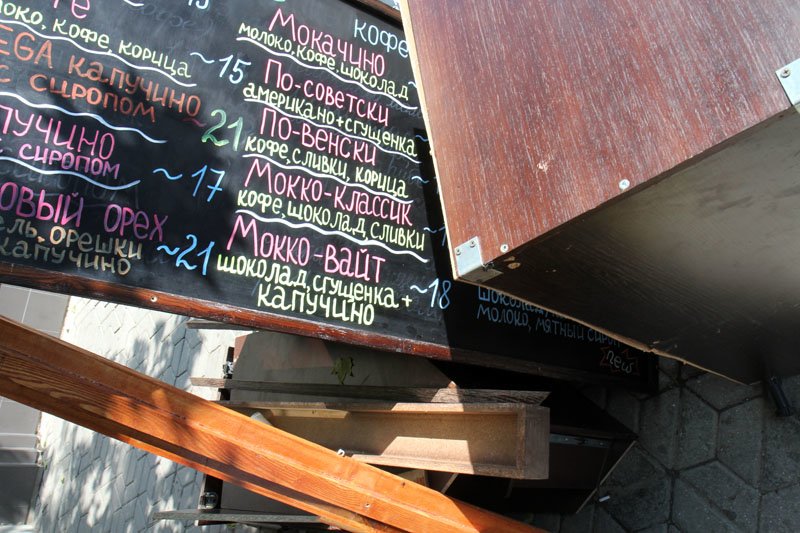 локо, кофе, корица ~15
EGA капучино
с сиропом 21
пучино
с сиропом ~17
овый орех
ель, орешки ~21
капучино
кофе
Мокачино
молоко, кофе, шоколад
По-советски
американо+сгущенка
По-венски
кофе, сливки, корица
Мокко-классик
кофе, шоколад, сливки
Мокко-вайт
шоколад, сгущенка + ~18
капучино
молоко, мятный сироп
new